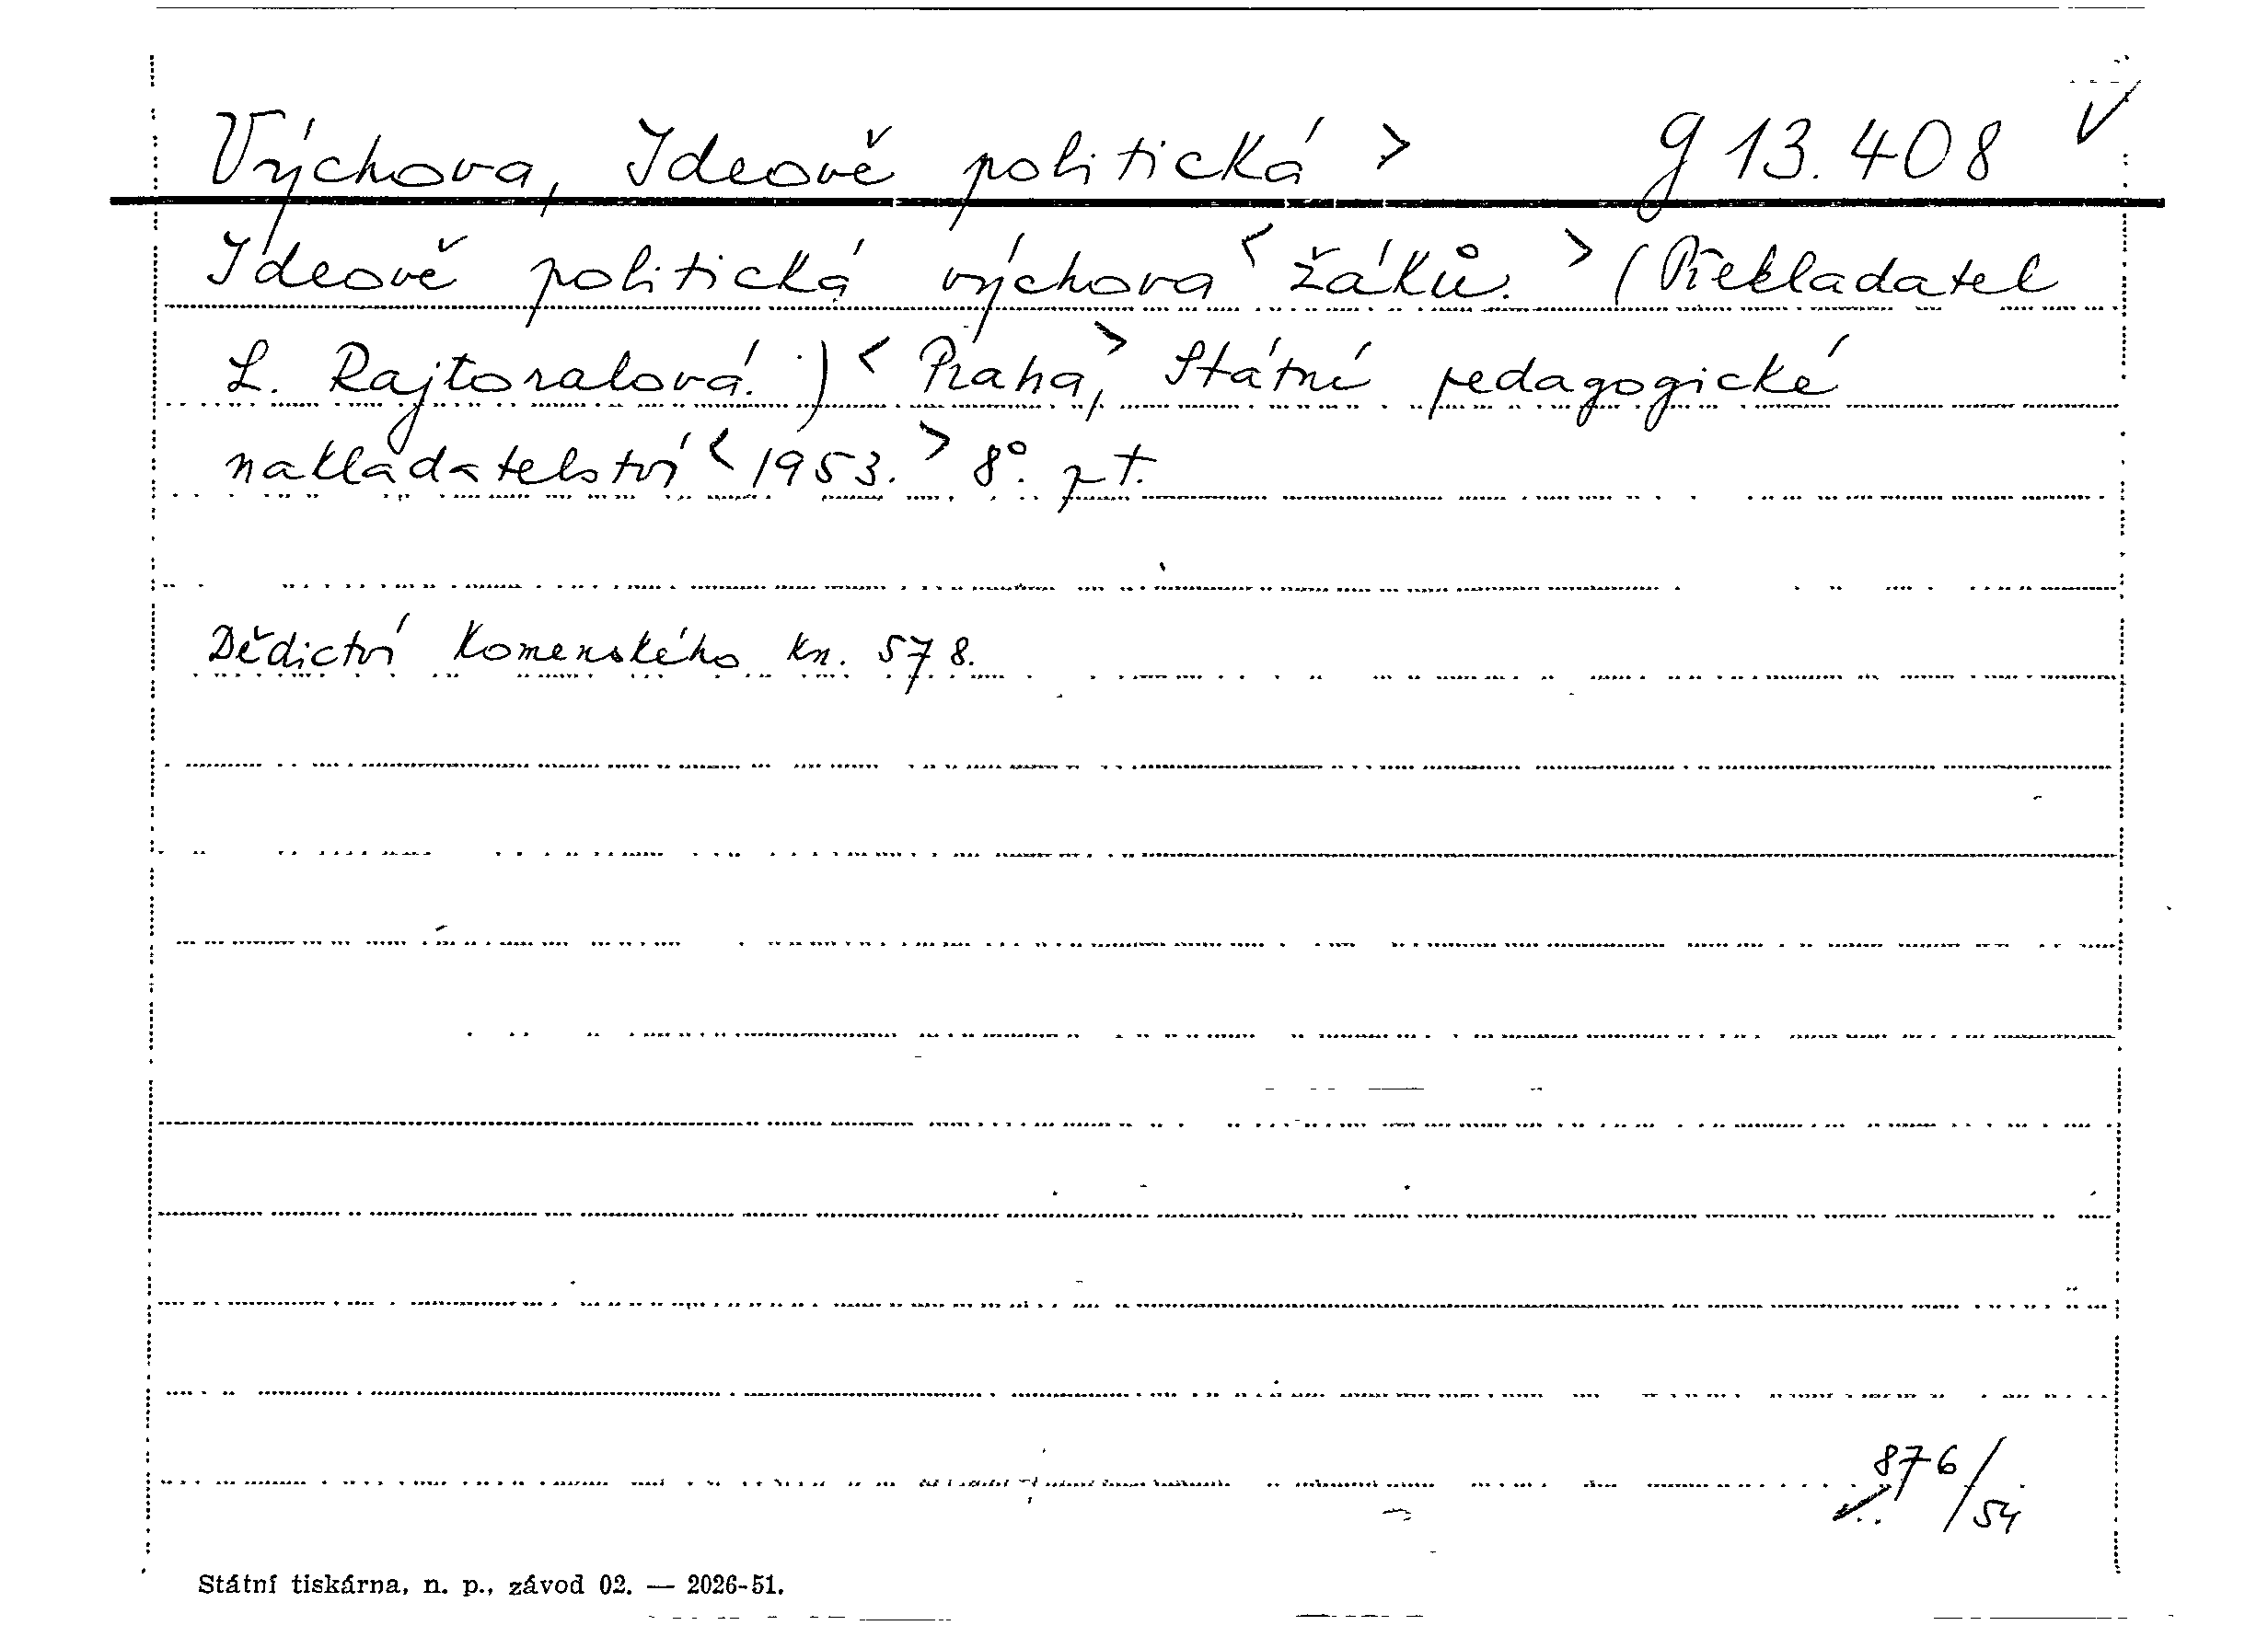 Výchova, Ideově politická > g 13.408 V
Ideově politická výchova < žáků. > (Překladatel
L. Rajtoralová.) < Praha, > Státní pedagogické
nakladatelství < 1953. > 8°. pt.
Dědictví Komenského kn. 578.
876/54
Státní tiskárna, n. p., závod 02. — 2026-51.